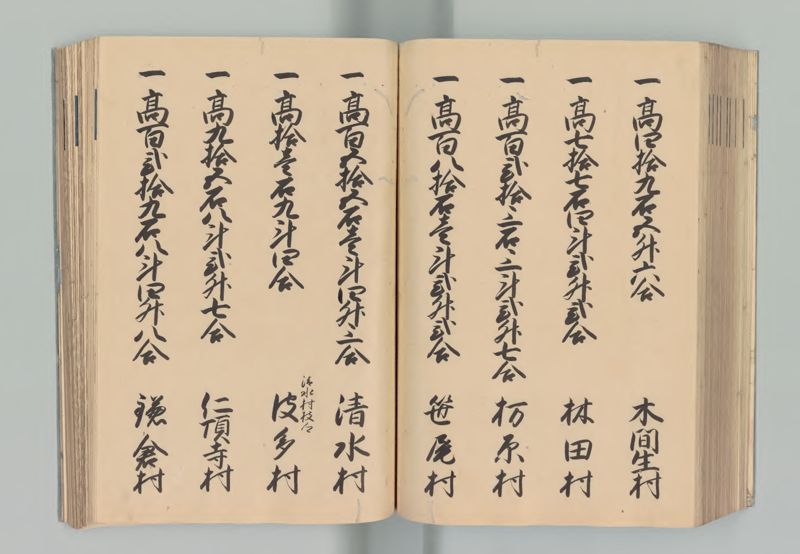 一高四拾九石五升六合 木間生村
一高七拾七石四斗弐升弐合 林田村
一高百弐拾三石三斗弐升七合 栃原村
一高百八拾石壱斗弐升弐合 笹尾村
一高百五拾五石壱斗四升三合 清水村
清水村枝郷
一高拾壱石九斗四合 波多村
一高九拾五石八斗弐升七合 仁頂寺村
一高百弐拾九石八斗四升八合 鎌倉村